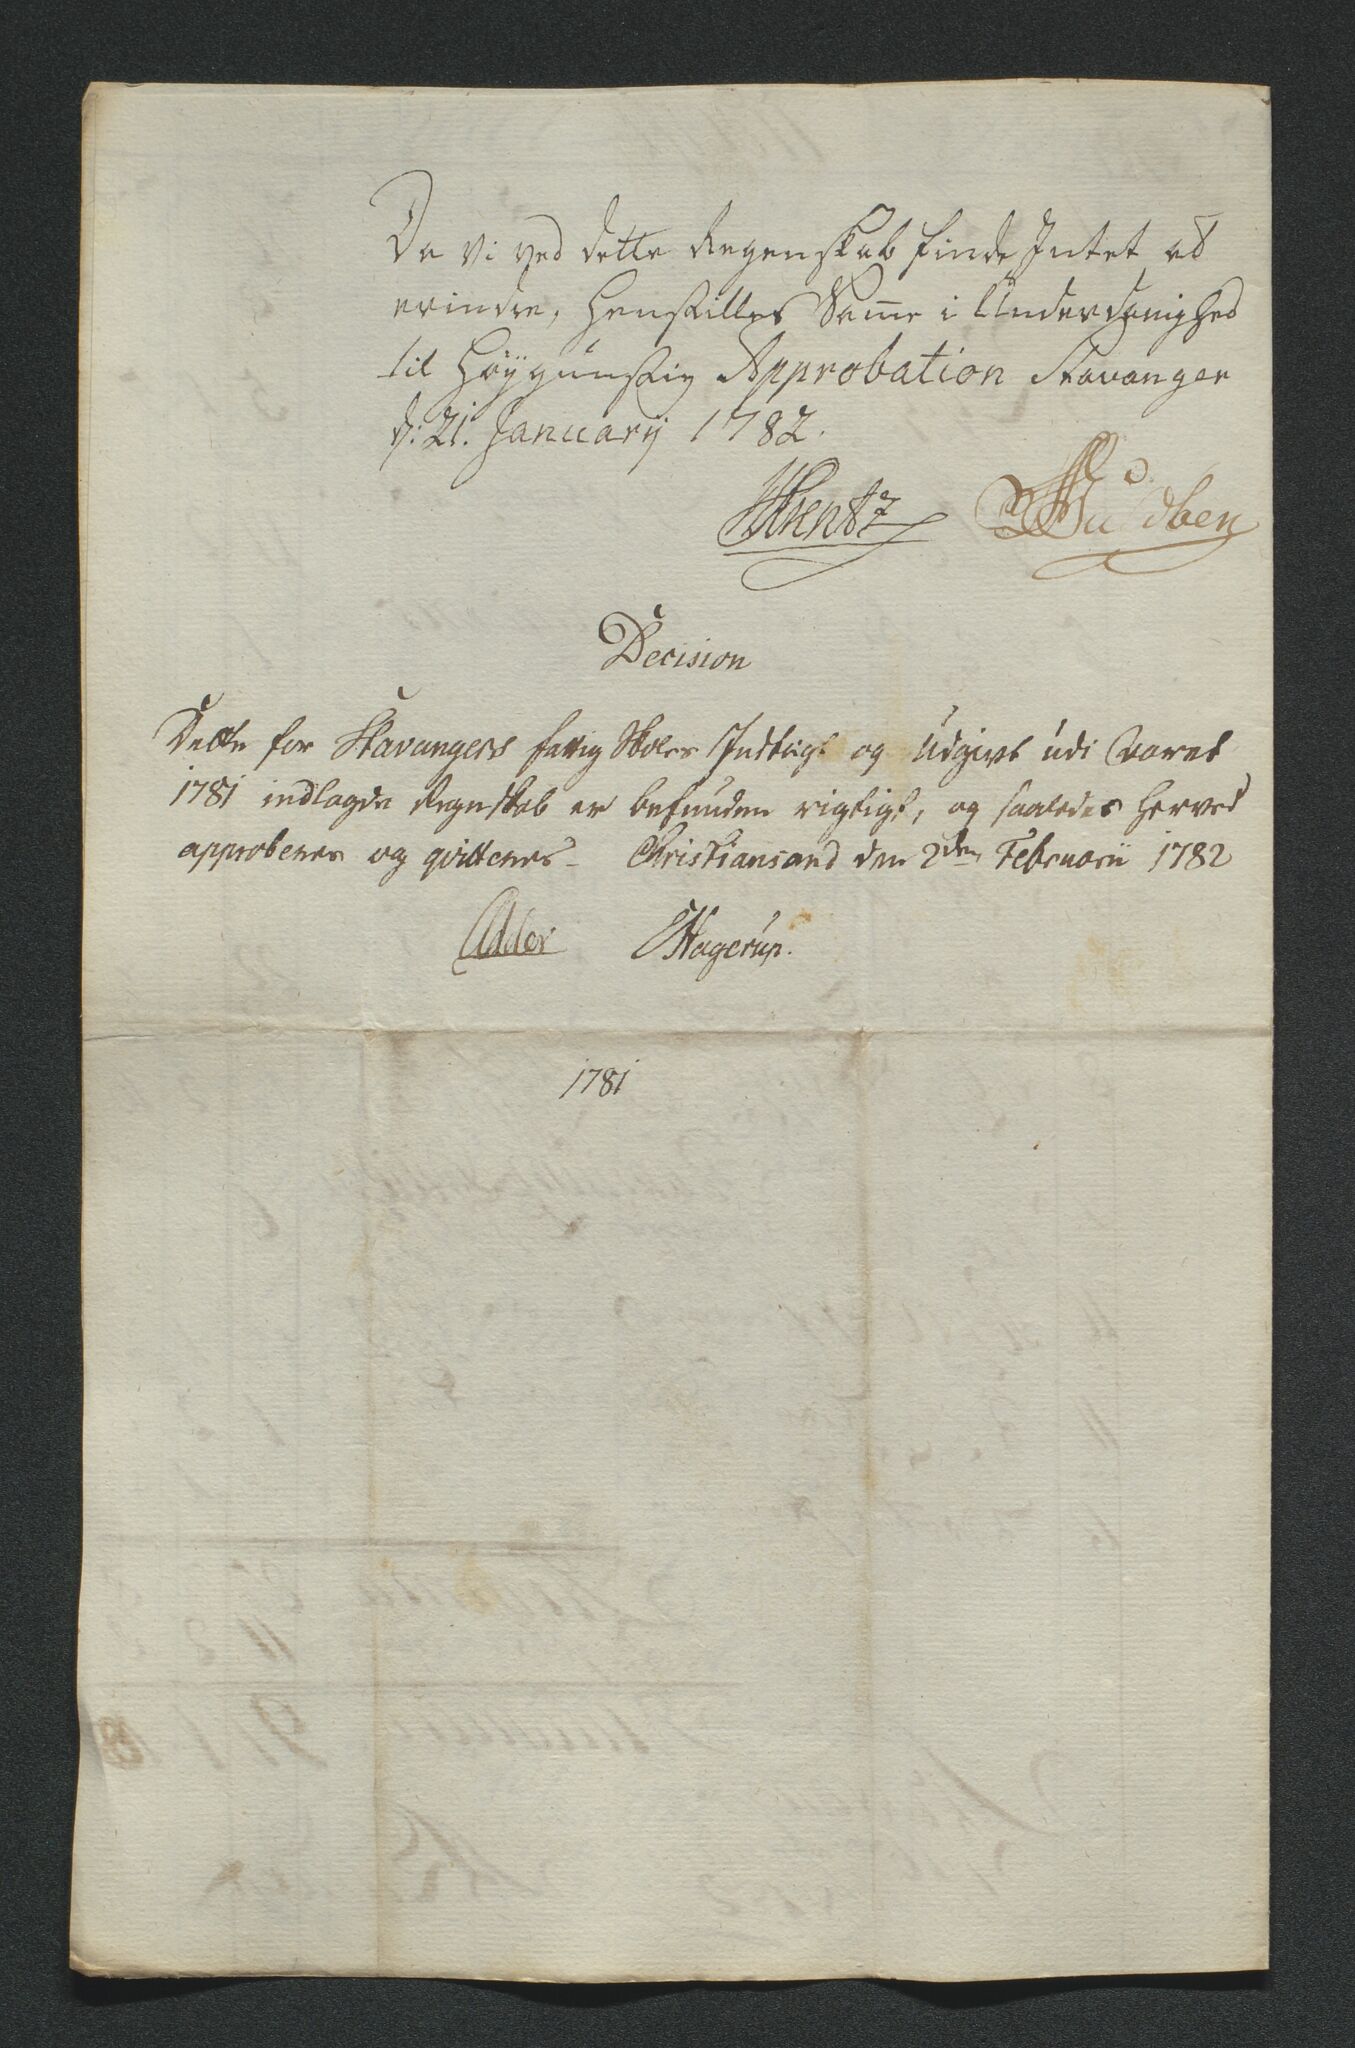 Da vi ved dette Regenskab finde Intet at
erindre, henstilles Samme i Underdanighed
til Høygunstig Approbation Stavanger
d: 21. Januarij 1782.
Decision
Dette for Stavangers fattig Skoles Indtægt og Udgivt udi Aaret
1781 indlagde Regnskab er befunden rigtigt, og saaledes herved
approberes og qvitteres – Christiansand den 2den Februarii 1782
Adler Hagerup.
1781